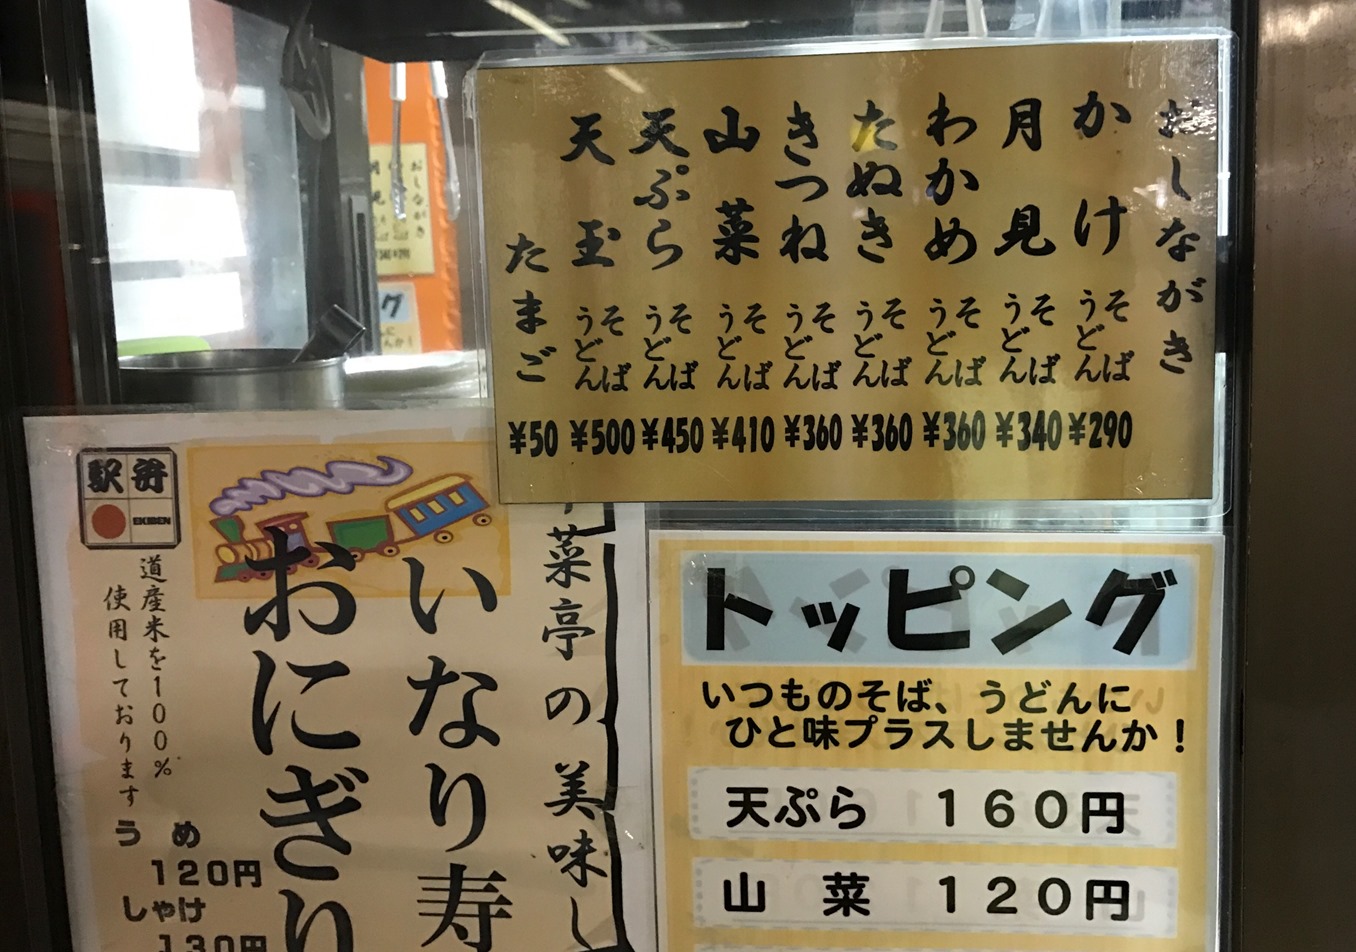 おしながき
かけ そば うどん ¥290
月見 そば うどん ¥340
わかめ そば うどん ¥360
たぬき そば うどん ¥360
きつね そば うどん ¥360
山菜 そば うどん ¥410
天ぷら そば うどん ¥450
天玉 そば うどん ¥500
たまご ¥50
トッピング
いつものそば、うどんに
ひと味プラスしませんか！
天ぷら 160円
山菜 120円
菜亭の美味し
いなり寿
おにぎり
駅弁
EKIBEN
道産米を100%
使用しております
うめ
120円
しゃけ
130円